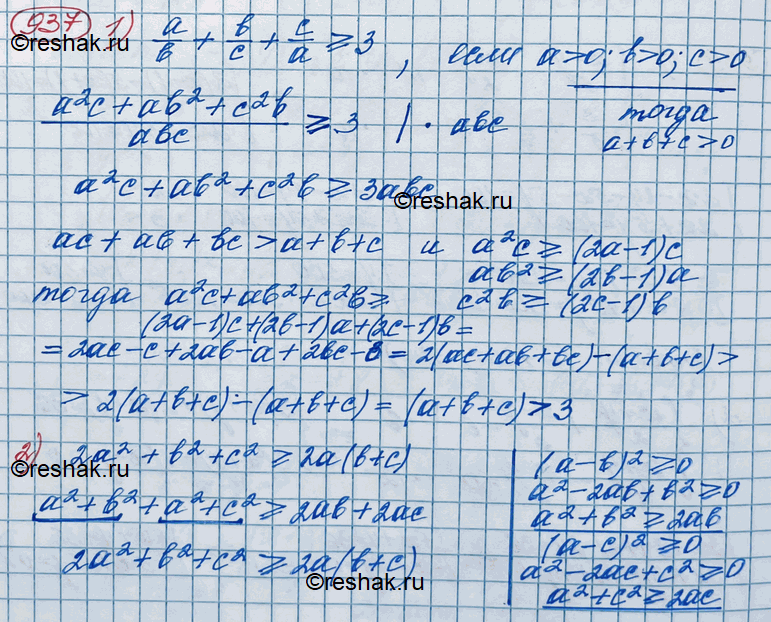 937 1) a/b + b/c + c/a ≥ 3, если a>0; b>0; c>0
©reshak.ru
(a²c + ab² + c²b)/abc ≥ 3 | · abc
тогда
a+b+c>0
a²c + ab² + c²b ≥ 3abc
©reshak.ru
ac + ab + bc > a+b+c и a²c ≥ (2a-1)c
ab² ≥ (2b-1)a
тогда a²c+ab²+c²b ≥ c²b ≥ (2c-1)b
(2a-1)c+(2b-1)a+(2c-1)b =
= 2ac-c+2ab-a+2bc-b = 2(ac+ab+bc)-(a+b+c) >
> 2(a+b+c)-(a+b+c) = (a+b+c) > 3
2) 2a² + b² + c² ≥ 2a(b+c)
©reshak.ru
a² + b² + a² + c² ≥ 2ab + 2ac
2a² + b² + c² ≥ 2a(b+c)
©reshak.ru
(a-b)² ≥ 0
a²-2ab+b² ≥ 0
a²+b² ≥ 2ab
(a-c)² ≥ 0
a²-2ac+c² ≥ 0
a²+c² ≥ 2ac